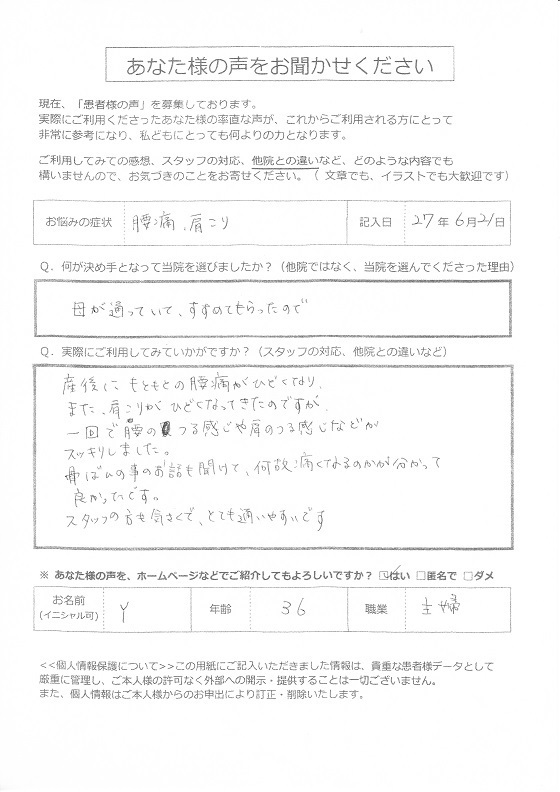 あなた様の声をお聞かせください
現在、「患者様の声」を募集しております。
実際にご利用くださったあなた様の率直な声が、これからご利用される方にとって
非常に参考になり、私どもにとっても何よりの力となります。
ご利用してみての感想、スタッフの対応、他院との違いなど、どのような内容でも
構いませんので、お気づきのことをお寄せください。（ 文章でも、イラストでも大歓迎です）
お悩みの症状 腰痛、肩こり 記入日 27年 6月21日
Q．何が決め手となって当院を選びましたか？（他院ではなく、当院を選んでくださった理由）
母が通っていて、すすめてもらったので
Q．実際にご利用してみていかがですか？（スタッフの対応、他院との違いなど）
産後に もともとの腰痛がひどくなり、
また、肩こりが ひどくなってきたのですが、
一回で腰の つる感じや肩のつる感じなどが
スッキリしました。
骨ばんの事のお話も聞けて、何故痛くなるのかが分かって
良かったです。
スタッフの方も気さくで、とても通いやすいです
※ あなた様の声を、ホームページなどでご紹介してもよろしいですか？ ☑はい □匿名で □ダメ
お名前 (イニシャル可) Y 年齢 36 職業 主婦
<<個人情報保護について>>この用紙にご記入いただきました情報は、貴重な患者様データとして
厳重に管理し、ご本人様の許可なく外部への開示・提供することは一切ございません。
また、個人情報はご本人様からのお申出により訂正・削除いたします。